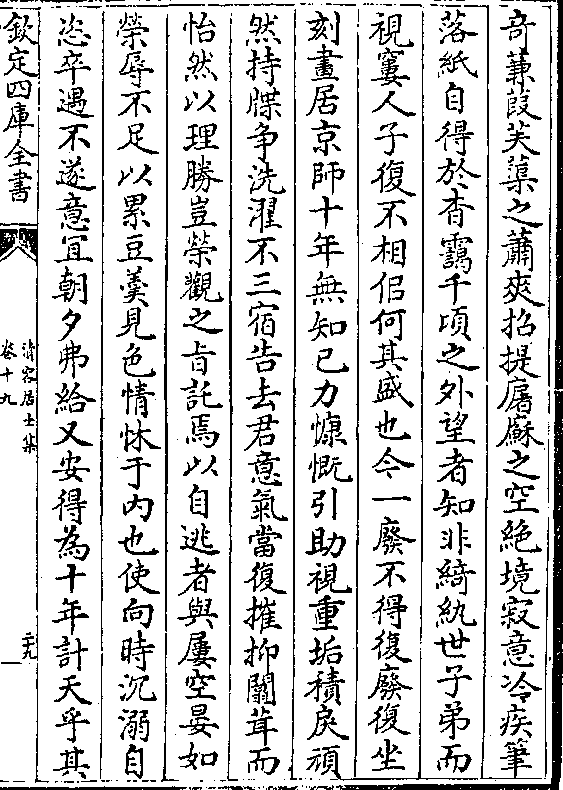 奇蒹葭芙蕖之蕭爽招提屠蘇之空絶境寂意冷疾筆
落紙自得於杳靄千頃之外望者知非綺紈世子弟而
視窶人子復不相侣何其盛也今一廢不得復廢復坐
刻畫居京師十年無知已力慷慨引助視重垢積戾頑
然持牒争洗濯不三宿告去君意氣當復摧抑闒茸而
怡然以理勝豈榮觀之㫖託焉以自逃者與屢空晏如
榮辱不足以累豆羮見色情怵于内也使向時沉溺自
恣卒遇不遂意宜朝夕弗給又安得為十年計天乎其
欽定四庫全書
清容居士集
卷十九
二九